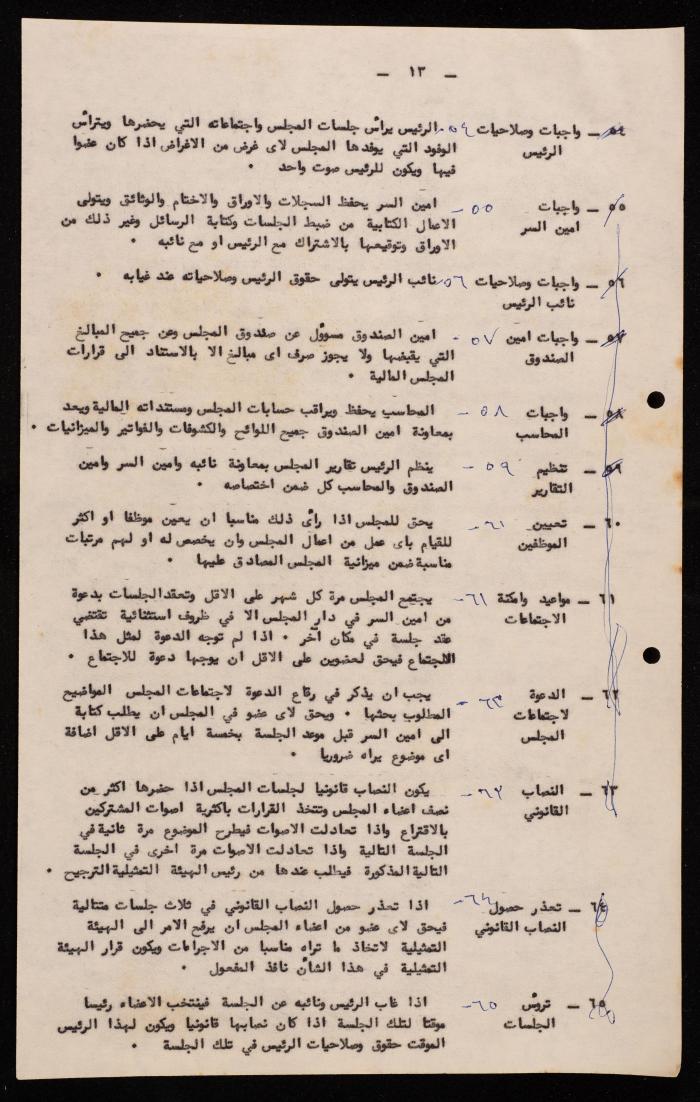 — ١٣ —
٥٤ — واجبات وصلاحيات ٥٤- الرئيس يرأس جلسات المجلس واجتماعاته التي يحضرها ويترأس
الرئيس الوفود التي يوفدها المجلس لاى غرض من الاغراض اذا كان عضوا
فيها ويكون للرئيس صوت واحد ٠
٥٥ — واجبات ٥٥- امين السر يحفظ السجلات والاوراق والاختام والوثائق ويتولى
امين السر الاعمال الكتابية من ضبط الجلسات وكتابة الرسائل وغير ذلك من
الاوراق وتوقيعها بالاشتراك مع الرئيس او مع نائبه ٠
٥٦ — واجبات وصلاحيات ٥٦- نائب الرئيس يتولى حقوق الرئيس وصلاحياته عند غيابه ٠
نائب الرئيس
٥٧ — واجبات امين ٥٧- امين الصندوق مسوؤل عن صندوق المجلس وعن جميع المبالغ
الصندوق التي يقبضها ولا يجوز صرف اى مبالغ الا بالاستناد الى قرارات
المجلس المالية ٠
٥٨ — واجبات ٥٨- المحاسب يحفظ ويراقب حسابات المجلس ومستنداته المالية ويعد
المحاسب بمعاونة امين الصندوق جميع اللوائح والكشوفات والفواتير والميزانيات ٠
٥٩ — تنظيم ٥٩- ينظم الرئيس تقارير المجلس بمعاونة نائبه وامين السر وامين
التقارير الصندوق والمحاسب كل ضمن اختصاصه ٠
٦٠ — تعيين ٦١- يحق للمجلس اذا رأى ذلك مناسبا ان يعين موظفا او اكثر
الموظفين للقيام باى عمل من اعمال المجلس وان يخصص له او لهم مرتبات
مناسبة ضمن ميزانية المجلس المصادق عليها ٠
٦١ — مواعيد وامكنة ٦١- يجتمع المجلس مرة كل شهر على الاقل وتعقد الجلسات بدعوة
الاجتماعات من امين السر في دار المجلس الا في ظروف استثنائية تقتضي
عقد جلسة في مكان آخر ٠ اذا لم توجه الدعوة لمثل هذا
الاجتماع فيحق لعضوين على الاقل ان يوجها دعوة للاجتماع ٠
٦٢ — الدعوة ٦٣- يجب ان يذكر في رقاع الدعوة لاجتماعات المجلس المواضيع
لاجتماعات المطلوب بحثها ٠ ويحق لاى عضو في المجلس ان يطلب كتابة
المجلس الى امين السر قبل موعد الجلسة بخمسة ايام على الاقل اضافة
اى موضوع يراه ضروريا ٠
٦٣ — النصاب ٦٣- يكون النصاب قانونيا لجلسات المجلس اذا حضرها اكثر من
القانوني نصف اعضاء المجلس وتتخذ القرارات باكثرية اصوات المشتركين
بالاقتراع واذا تعادلت الاصوات فيطرح الموضوع مرة ثانية في
الجلسة التالية واذا تعادلت الاصوات مرة اخرى في الجلسة
التالية المذكورة فيطلب عندها من رئيس الهيئة التمثيلية الترجيح ٠
٦٤ — تعذر حصول ٦٤- اذا تعذر حصول النصاب القانوني في ثلاث جلسات متتالية
النصاب القانوني فيحق لاى عضو من اعضاء المجلس ان يرفع الامر الى الهيئة
التمثيلية لاتخاذ ما تراه مناسبا من الاجراءات ويكون قرار الهيئة
التمثيلية في هذا الشأن نافذ المفعول ٠
٦٥ — تروس ٦٥- اذا غاب الرئيس ونائبه عن الجلسة فينتخب الاعضاء رئيسا
الجلسات موقتا لتلك الجلسة اذا كان نصابها قانونيا ويكون لهذا الرئيس
الموقت حقوق وصلاحيات الرئيس في تلك الجلسة ٠